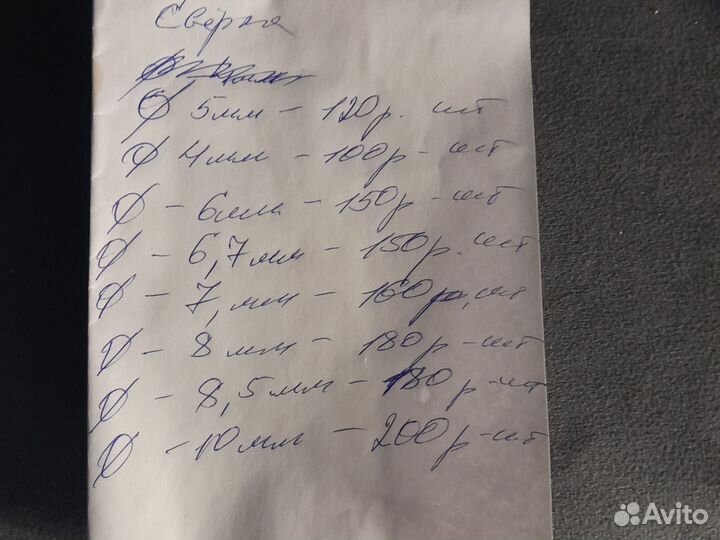 Свёрла
Ø 5мм - 120р. шт
Ø 4мм - 100р - шт
Ø - 6мм - 150р - шт
Ø - 6,7мм - 150р. шт
Ø - 7, мм - 160р, шт
Ø - 8 мм - 180р - шт
Ø - 8,5мм - 180р - шт
Ø - 10мм - 200р - шт
Avito